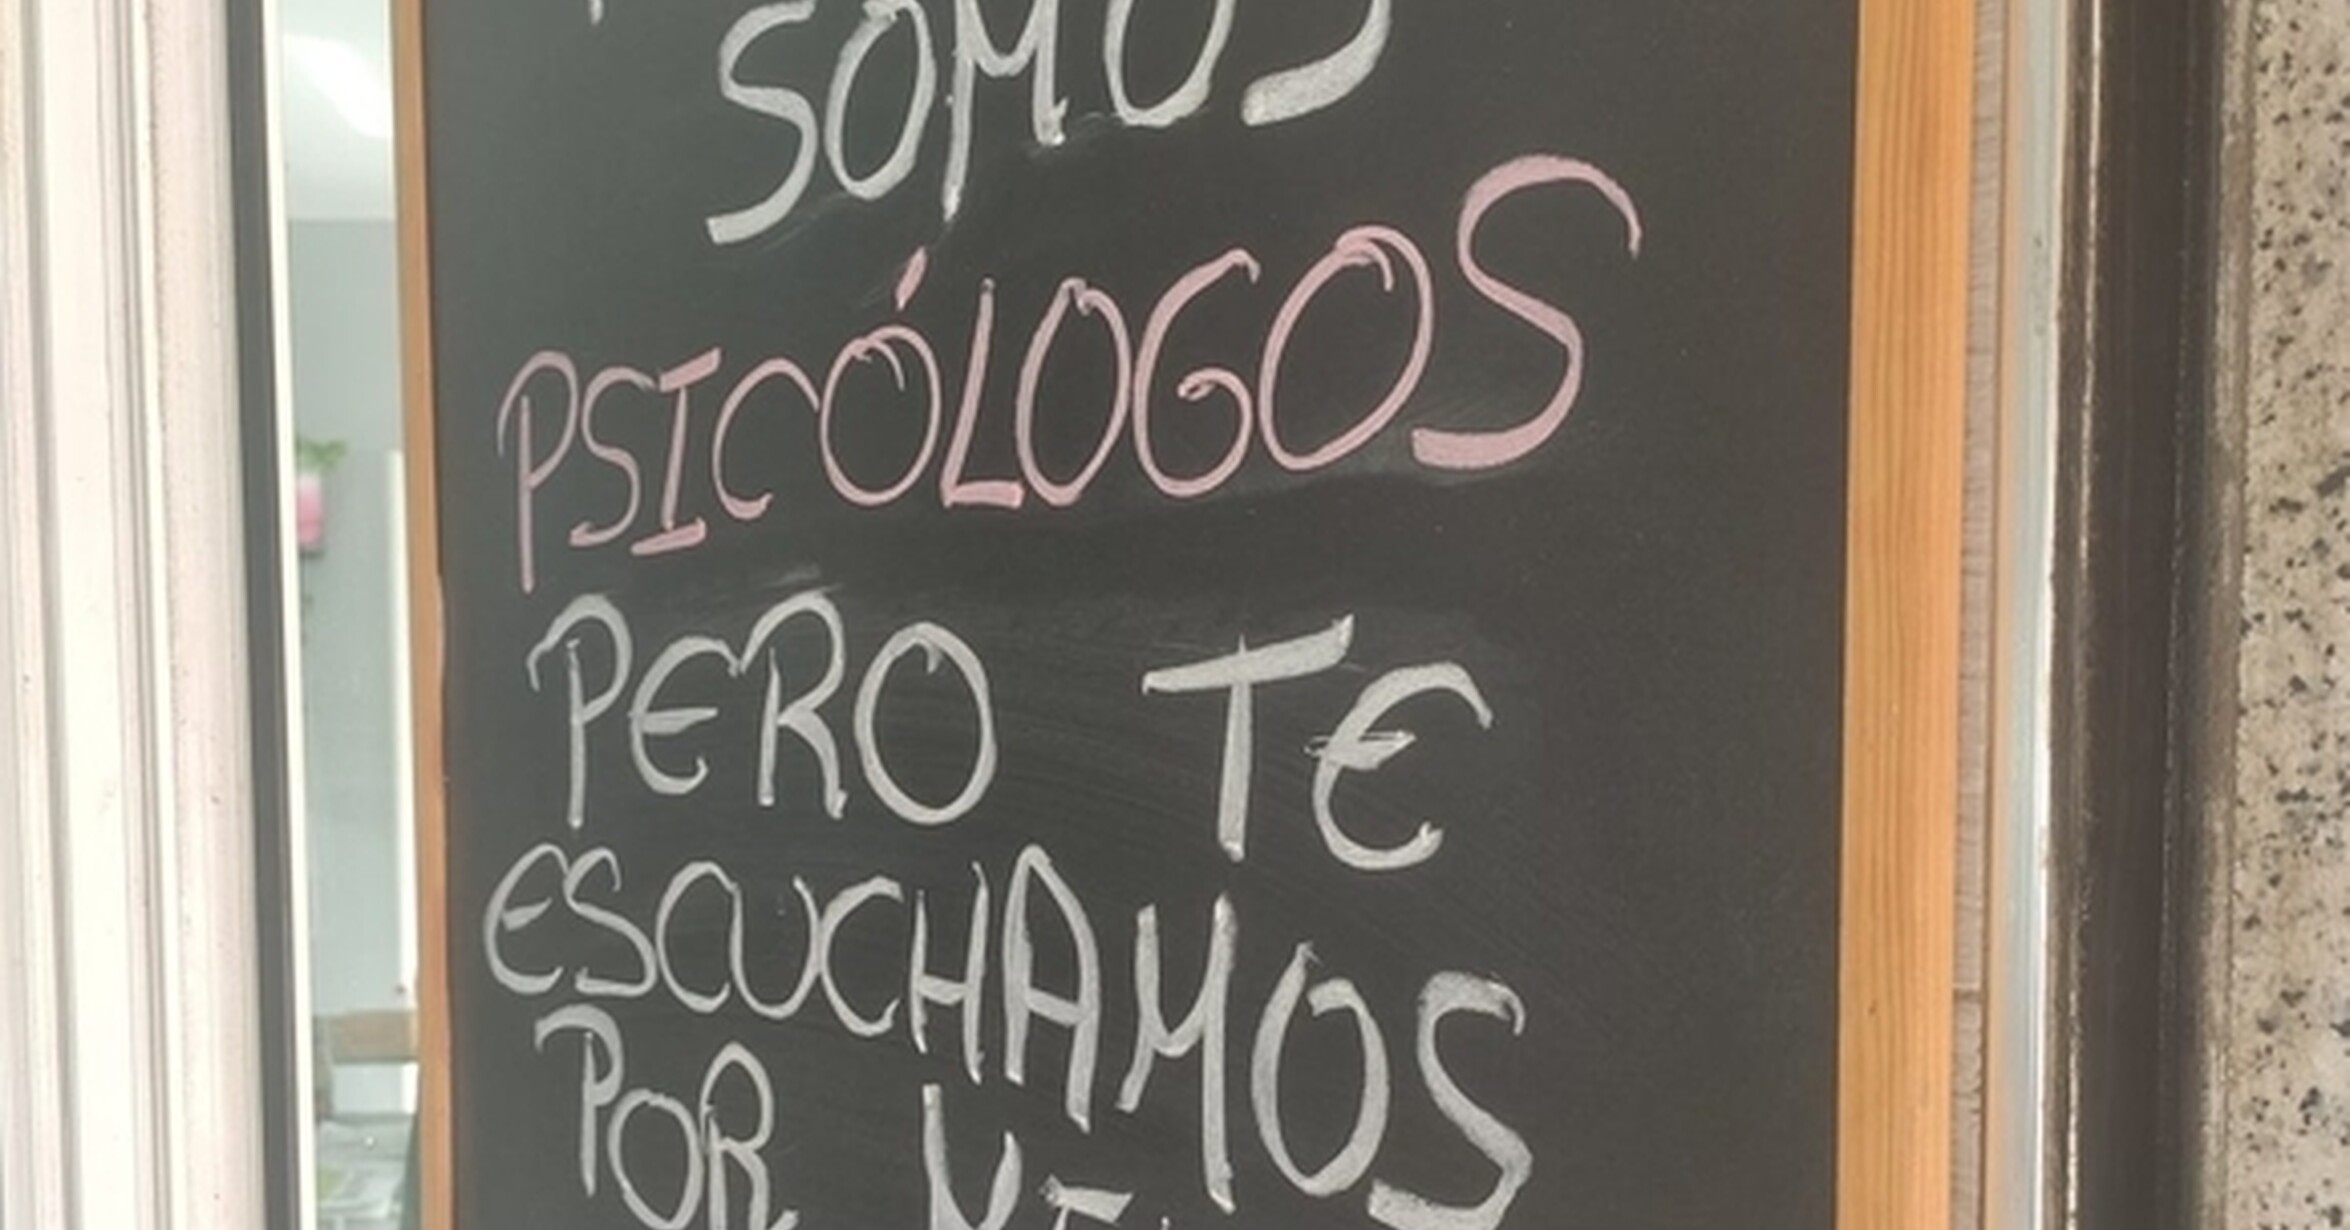 SOMOS
PSICÓLOGOS
PERO TE
ESCUCHAMOS
POR